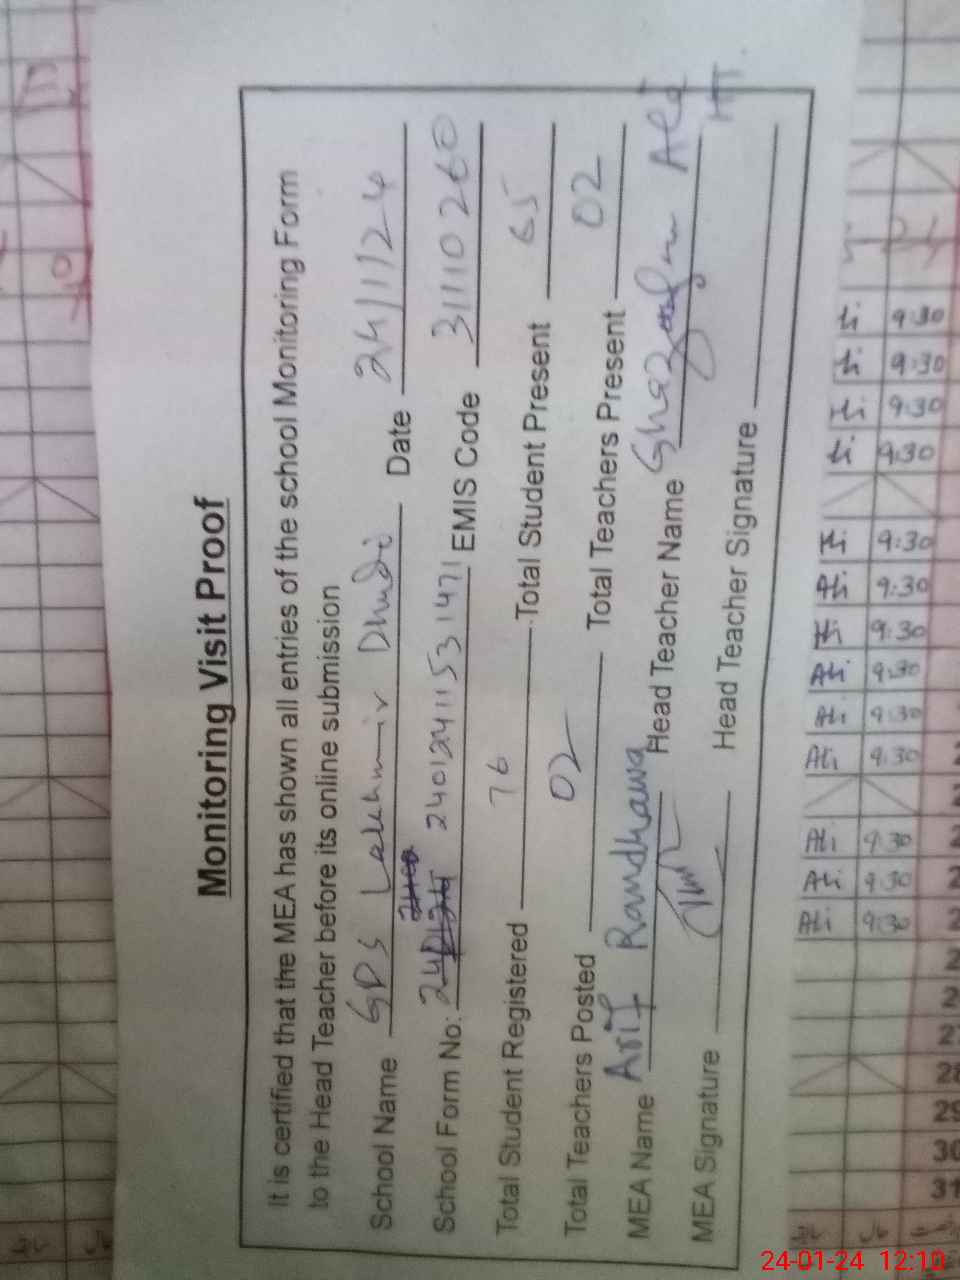 Monitoring Visit Proof
It is certified that the MEA has shown all entries of the school Monitoring Form
to the Head Teacher before its online submission
School Name GPS Lakhmir Dhudi Date 24/1/24
School Form No: 24012411531471 EMIS Code 31110260
Total Student Registered 76 Total Student Present 65
Total Teachers Posted 02 Total Teachers Present 02
MEA Name Arif Randhawa Head Teacher Name Ghazanfar Ali
HT.
MEA Signature Head Teacher Signature
Ali Ali Ali Ali Ali Ali Ali
9:30 9:30 9:30 9:30 9:30 9:30 9:30 9:30 9:30 9:30 9:30 9:30 9:30
28
29
30
31
24-01-24 12:10